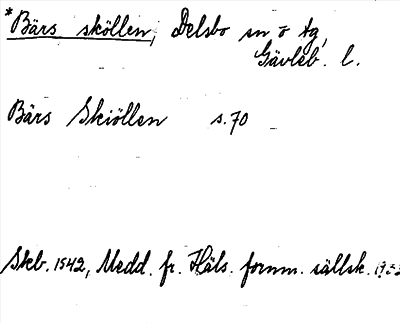 *Bärs sköllen, Delsbo sn o tg,
Gävleb. l.
Bärs Skiöllen s. 70
Skb. 1542, Medd. fr. Häls. fornm. sällsk.